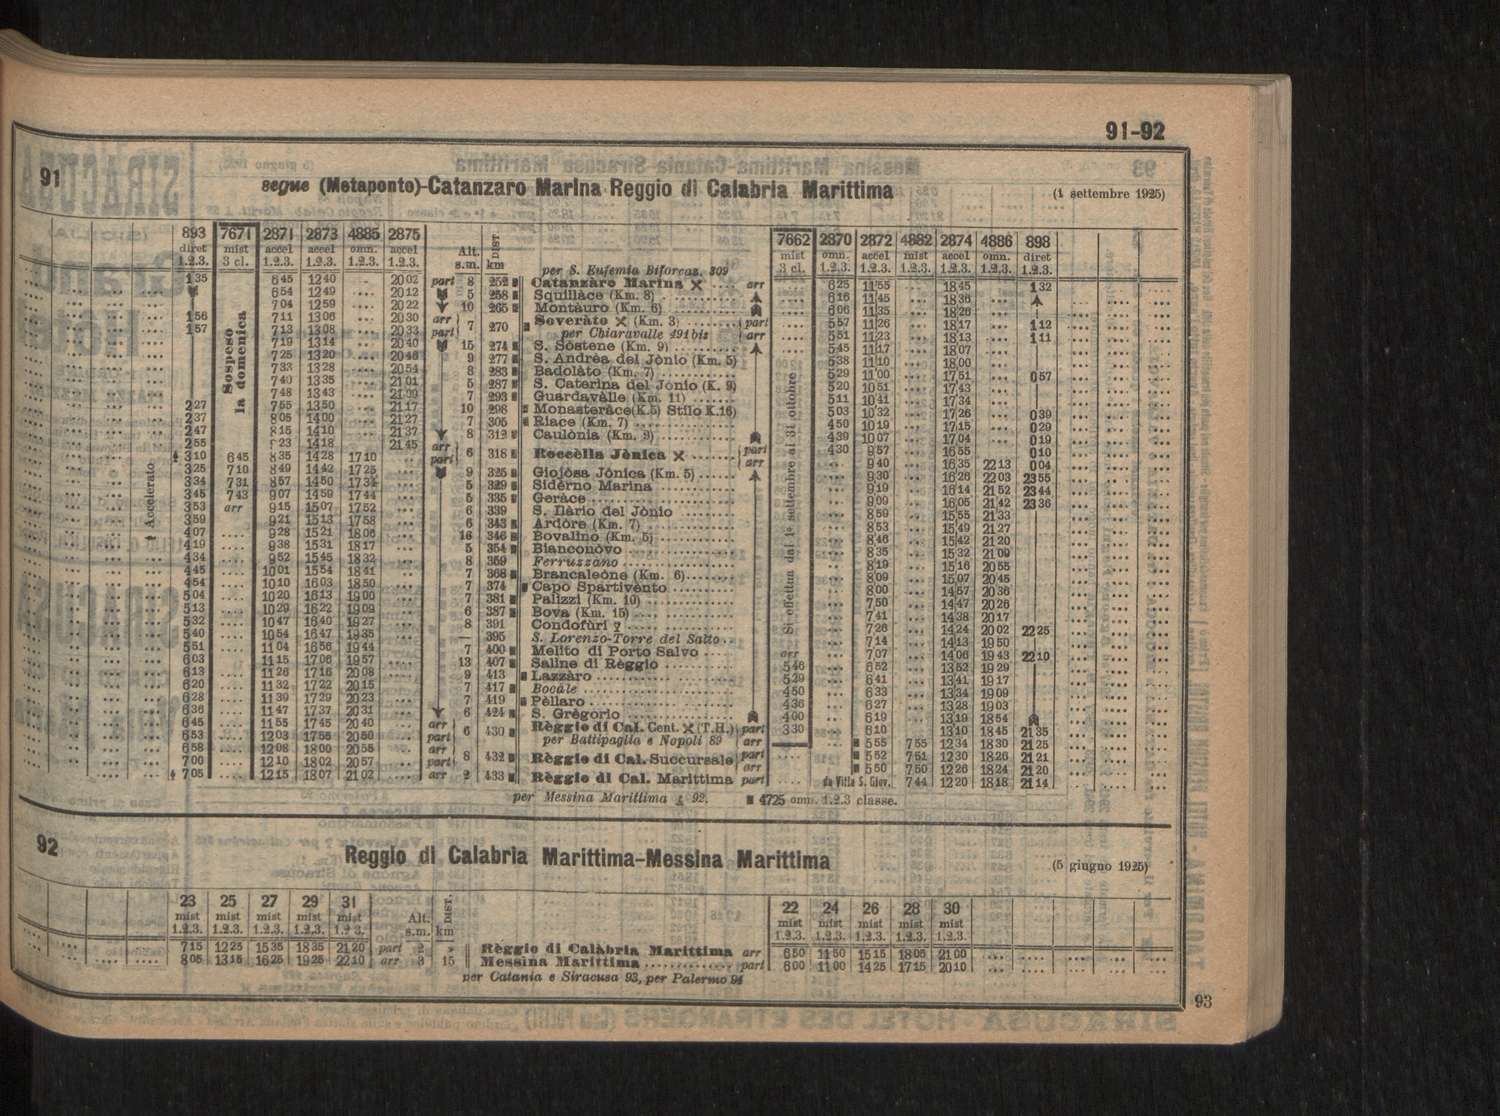 91-92
91 segue (Metaponto)-Catanzaro Marina Reggio di Calabria Marittima (1 settembre 1925)
893 7671 2871 2873 4885 2875 Alt. DIST. 7662 2870 2872 4882 2874 4886 898
diret mist accel accel omn. accel s.m. km mist omn. accel mist accel omn. diret
1.2.3. 3 cl. 1.2.3. 1.2.3. 1.2.3. 1.2.3. 3 cl. 1.2.3. 1.2.3. 1.2.3. 1.2.3. 1.2.3. 1.2.3.
per S. Eufemia Biforcaz. 809
1 35 6 45 12 40 20 02 part 8 252 Catanzaro Marina arr 6 25 11 55 18 45 1 32
6 54 12 49 20 12 5 258 Squillàce (Km. 8) 6 16 11 45 18 36
7 04 12 59 20 22 10 265 Montàuro (Km. 6) 6 06 11 35 18 26
1 56 7 11 13 06 20 30 arr 7 270 Soveràto (Km. 3) part 5 57 11 26 18 17 1 12
1 57 7 13 13 08 20 33 part per Chiaravalle 491 bis arr 5 51 11 23 18 13 1 11
7 19 13 14 20 40 15 274 S. Sòstene (Km. 9) 5 45 11 17 18 07
7 25 13 20 20 46 9 277 S. Andrèa del Jònio (Km. 5) 5 38 11 10 18 00
7 33 13 28 20 54 8 283 Badolàto (Km. 7) 5 29 11 00 17 51 0 57
7 40 13 35 21 01 5 287 S. Caterina del Jònio (K. 9) 5 20 10 51 17 43
7 48 13 43 21 09 7 293 Guardavàlle (Km. 11) 5 11 10 41 17 34
2 27 7 55 13 50 21 17 10 298 Monasteràce(K.5) Stilo K.16) 5 03 10 32 17 26 0 39
2 37 8 05 14 00 21 27 7 305 Riace (Km. 7) 4 50 10 19 17 15 0 29
2 47 8 15 14 10 21 37 8 312 Caulònia (Km. 9) 4 39 10 07 17 04 0 19
2 55 8 23 14 18 21 45 arr 6 318 Roccèlla Jònica part 4 30 9 57 16 55 0 10
3 10 6 45 8 35 14 28 17 10 part arr 9 40 16 35 22 13 0 04
3 25 7 10 8 49 14 42 17 25 9 325 Giojòsa Jònica (Km. 5) 9 30 16 26 22 03 23 55
3 34 7 31 8 57 14 50 17 34 5 329 Sidèrno Marina 9 19 16 14 21 52 23 44
3 45 7 43 9 07 14 59 17 44 5 335 Geràce 9 09 16 05 21 42 23 36
3 53 arr 9 15 15 07 17 52 6 339 S. Ilàrio del Jònio 8 59 15 55 21 33
3 59 9 21 15 13 17 58 6 343 Ardòre (Km. 7) 8 53 15 49 21 27
4 07 9 28 15 21 18 06 16 346 Bovalino (Km. 5) 8 46 15 42 21 20
4 19 9 38 15 31 18 17 5 354 Bianconòvo 8 35 15 32 21 09
4 34 9 52 15 45 18 32 8 359 Ferruzzano 8 19 15 16 20 55
4 45 10 01 15 54 18 41 7 368 Brancaleòne (Km. 6) 8 09 15 07 20 45
4 54 10 10 16 03 18 50 7 374 Capo Spartivènto 8 00 14 57 20 36
5 04 10 20 16 13 19 00 7 381 Palizzi (Km. 10) 7 50 14 47 20 26
5 13 10 29 16 22 19 09 6 387 Bova (Km. 15) 7 41 14 38 20 17
5 32 10 47 16 40 19 27 8 391 Condofùri 7 26 14 24 20 02 22 25
5 40 10 54 16 47 19 35 — 395 S. Lorenzo-Torre del Salto 7 14 14 13 19 50
5 51 11 04 16 56 19 44 7 400 Melito di Porto Salvo arr 7 07 14 06 19 43 22 10
6 03 11 15 17 06 19 57 13 407 Saline di Règgio 5 46 6 52 13 52 19 29
6 13 11 26 17 16 20 08 9 413 Lazzàro 5 29 6 41 13 41 19 17
6 20 11 32 17 22 20 15 7 417 Bocàle 4 50 6 33 13 34 19 09
6 28 11 39 17 29 20 23 7 419 Pèllaro 4 36 6 27 13 28 19 03
6 36 11 47 17 37 20 31 6 424 S. Grègorio 4 00 6 19 13 19 18 54
6 45 11 55 17 45 20 40 arr 6 430 Règgio di Cal. Cent. (T.H.) part 3 30 6 10 13 10 18 45 21 35
6 53 12 03 17 55 20 50 part per Battipaglia e Nopoli 89 arr 5 55 7 55 12 34 18 30 21 25
6 58 12 08 18 00 20 55 arr 8 432 Règgio di Cal. Succursale part 5 52 7 51 12 30 18 26 21 21
7 00 12 10 18 02 20 57 part arr 5 50 7 50 12 26 18 24 21 20
7 05 12 15 18 07 21 02 arr 2 433 Règgio di Cal. Marittima part da Villa S. Giov. 7 44 12 20 18 18 21 14
Sospeso la domenica
Accelerato
Si effettua dal 1° settembre al 31 ottobre
per Messina Marittima 92. 4725 omn. 1.2.3 classe.
92 Reggio di Calabria Marittima-Messina Marittima (5 giugno 1925)
23 25 27 29 31 Alt. DIST. 22 24 26 28 30
mist mist mist mist mist s.m. km mist mist mist mist mist
1.2.3. 1.2.3. 1.2.3. 1.2.3. 1.2.3. 1.2.3. 1.2.3. 1.2.3. 1.2.3. 1.2.3.
7 15 12 25 15 35 18 35 21 20 part 2 » Règgio di Calàbria Marittima arr 6 50 11 50 15 15 18 05 21 00
8 05 13 15 16 25 19 25 22 10 arr 3 15 Messina Marittima part 6 00 11 00 14 25 17 15 20 10
per Catania e Siracusa 93, per Palermo 94
93